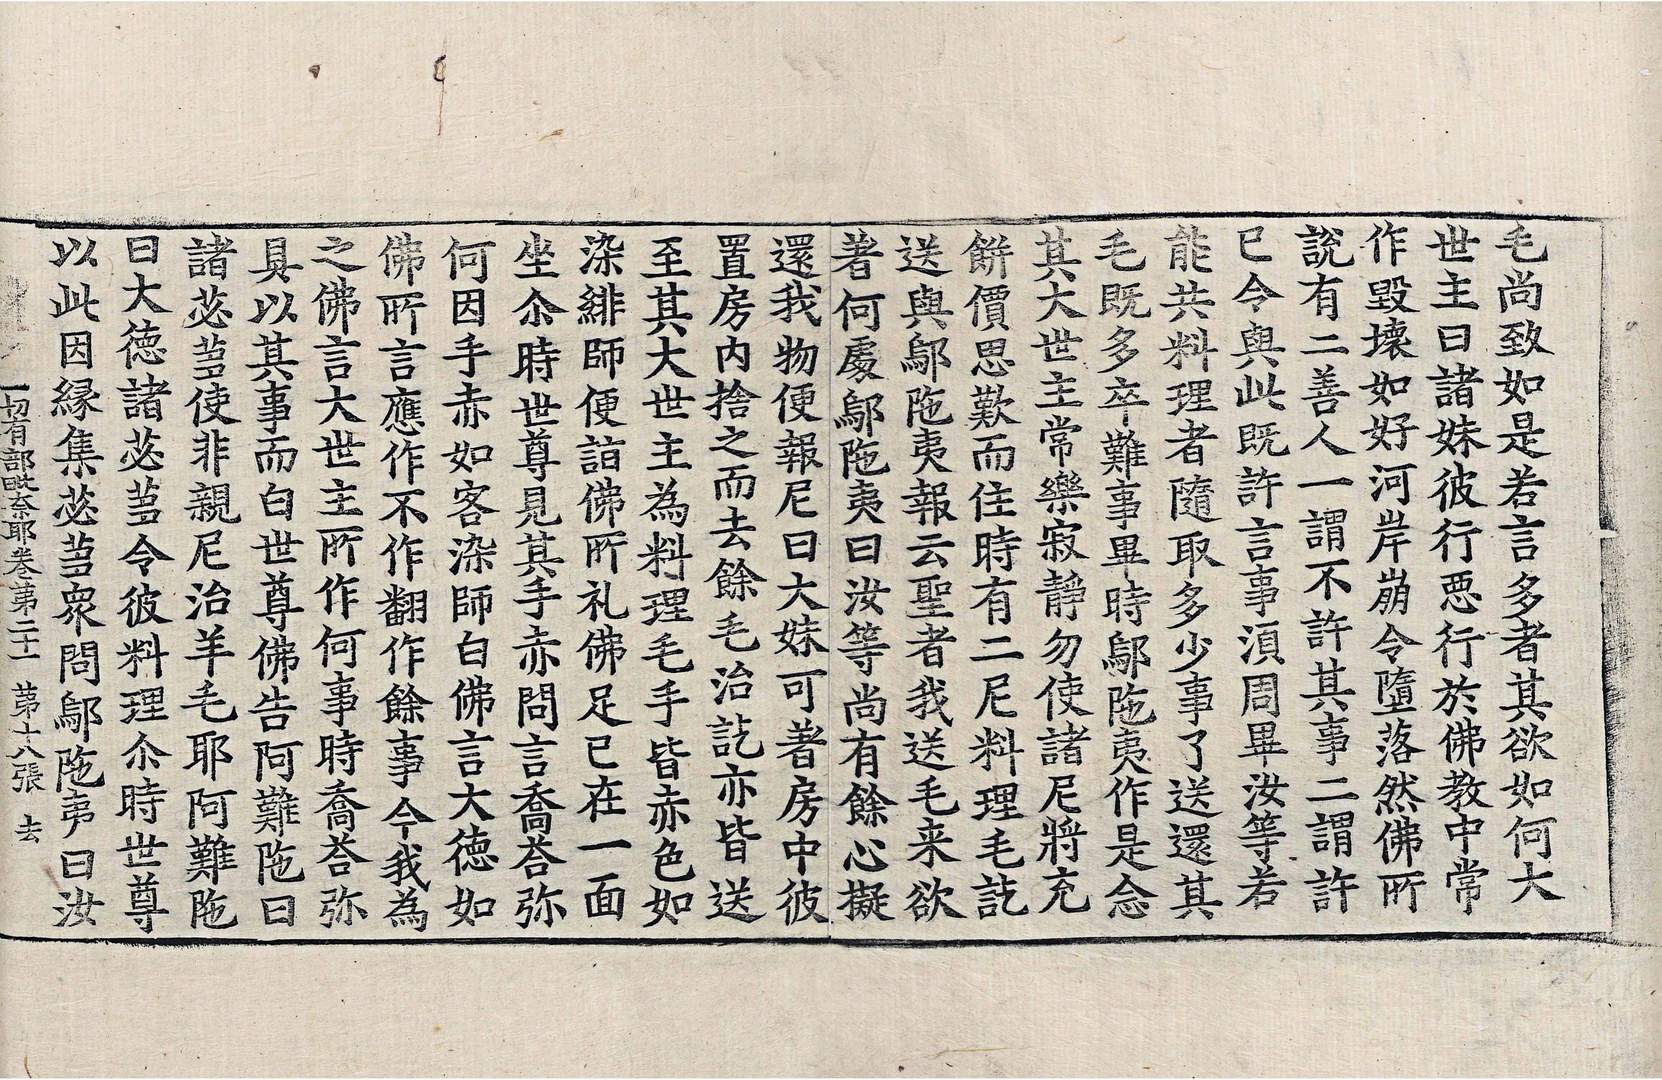 毛尚致如是若言多者其欲如何大
世主曰諸妹彼行惡行於佛教中常
作毀壞如好河岸崩令墮落然佛所
說有二善人一謂不許其事二謂許
已令與此既許言事湏周畢汝等若
能共料理者隨取多少事了送還其
毛既多卒難事畢時鄔陁夷作是念
其大世主常樂寂靜勿使諸尼將充
餅價思歎而住時有二尼料理毛訖
送與鄔陁夷報云聖者我送毛来欲
著何處鄔陁夷曰汝等尚有餘心擬
還我物便報尼曰大妹可著房中彼
置房內捨之而去餘毛治訖亦皆送
至其大世主為料理毛手皆赤色如
染緋師便詣佛所礼佛足已在一面
坐尒時世尊見其手赤問言喬荅弥
何因手赤如客染師白佛言大德如
佛所言應作不作翻作餘事今我為
之佛言大世主所作何事時喬荅弥
具以其事而白世尊佛告阿難陁曰
諸苾蒭使非親尼治羊毛耶阿難陁
曰大德諸苾蒭令彼料理尒時世尊
以此因緣集苾蒭衆問鄔陁夷曰汝
一切有部毗奈耶卷第二十一 第十八張 去